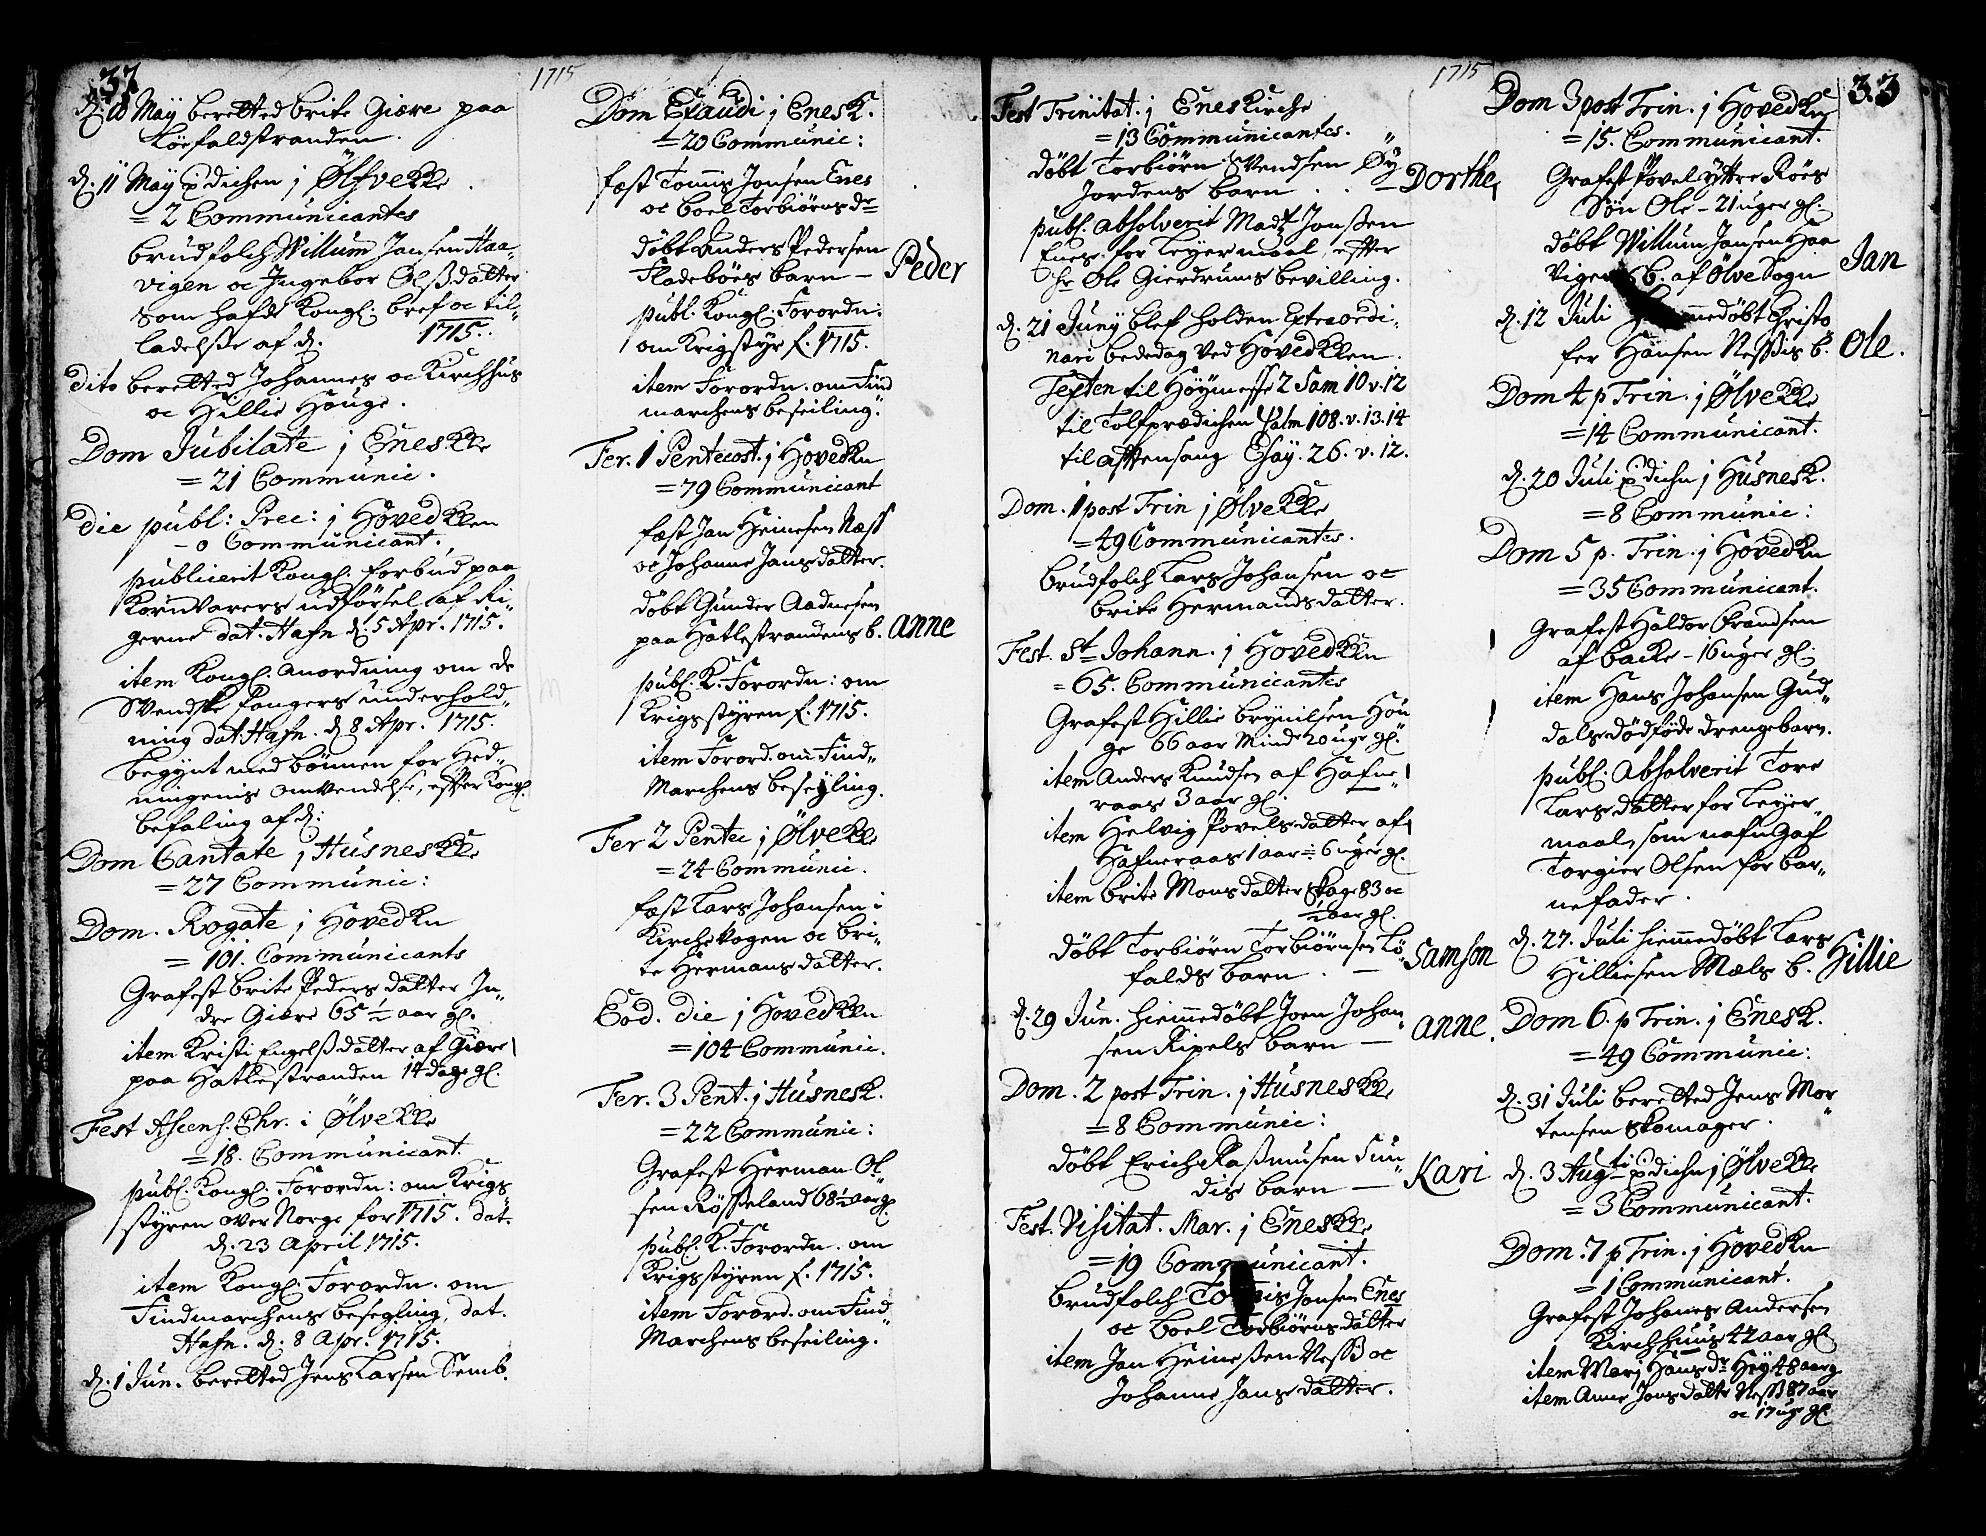 37
1715
d. 10 Maÿ beretted brite Giere paa
Løefaldstranden.
d. 11 Maÿ prædichen j Ølfvekke
= 2 Communicantes
brudfolch Willum Jansen Haa„
vigen oc Ingebor Olsßdatter
som hafde Kongl. bref oc til„
ladelsße af d. 1715.
dito beretted Johannes oc Kirchhus
oc Hillie Houge.
Dom Jubilate j Eneskke
= 21 Communic.
die publ: Prec: j Hovedkken
– 0 Communicant.
publicerit Kongl. forbud paa
Kornvarers udførsel af Ri„
gerne dat. Hafn d. 5 Apr. 1715.
item Kongl. anordning om de
Svendske fangers underhold„
ning dat: Hafn. d. 8 Apr. 1715.
begÿnt med bønnen for Hed„
ningenis omvendelse, efter Kongl.
befaling af d:
Dom Cantate j Husneskke
= 27 Communic:
Dom. Rogate j Hovedkn
= 101. Communicants
Grafest brite Peders datter In„
dre Giære 65 ½ aar gl.
item Kristi Engelsßdatter af Giære
paa Hatlestranden 14 dage gl.
Fest Ascens. Chr. i Ølvekke
= 18. Communicant.
publ. Kongl. Forordn: om Krigs
stÿren over Norge for 1715. dat.
d. 23 April 1715.
item Kongl. Forordn. om
Findmarchens besegling, dat.
Hafn. d. 8 Apr. 1715.
d. 1 Jun. beretted Jens Larsen Semb.
Dom Exaudi j Enesk.
= 20 Communic:
fæst Tomis Jonsen Enes
oc boel Torbiørnsdr
døbt Anders Pedersen
Fladebøes barn – Peder
publ. Kongl. Forordn:
om Krigstÿr f. 1715.
item Forordn. om Find
marchens beseiling.
Fer. 1 Pentecost. j Hovedkn
= 79 Communicant
fæst Jan Heinesen Næss
oc Johanne Jansdatter.
døbt Gunder Aadnesen
paa Hatlestrandens b. Anne
publ. K. Forordn: om
Krigsstÿren f. 1715.
item Forord. om Find„
Marchens beseÿling.
Fer 2 Pentec j Ølvekke
= 24 Communic.
fæst Lars Johansen i
Kircheskogen oc bri„
te Hermans datter.
Eod. die j Hovedkkn
= 104 Communic.
Fer. 3 Pent. j Husnesk.
= 22 Communic:
Grafest Herman Ol„
sen Røsseland 68 ½ aar gl
publ. K. Forordn. om
Krigsstÿren f. 1715.
item Forord. om Find„
Marchens beseiling.
1715
33
Fest Trinitat. j Eneskirche
= 13 Communicantes.
døbt Torbiørn Svendsen Øÿ
Jordens barn . . – Dorthe,
publ. absolverit Madz Jonsßen
Enes. for Leÿermaal, efter
hr Ole Gierdrums bevilling.
d. 21 Junÿ blef holden Extraordi„
nari bededag ved Hovedkken.
Texten til Høÿmesse 2 Sam 10 v. 12
til Tolfprædichen Psalm 108. v. 13. 14
til aftensang Esaÿ. 26. v. 12.
Dom. 1 post Trin j Ølvekke
= 49 Communicantes.
brudfolch Lars Johansen oc
brite Hermandsdatter.
Fest. St Johann. j Hovedkkn
= 65. Communicantes
Grafest Hillie Brÿnilsen Hou
ge 66 aar Mind 20 uger gl.
item Anders Knudsen af Hafne„
raas 3 aar gl.
item Helvig Povels datter af
Hafneraas 1 aar – 6 uger gl.
item brite Mons datter Skage 83 oc
½ aar gl.
døbt Torbiørn Torbiørnsen Lø„
falds barn . – Samson
d. 29 Jun. hiemmedøbt Joen Johan„
sen Ripels barn – Anne.
Dom. 2 post Trin. j Husneskke
= 8 Communic:
døbt Erich Rasßmusen Sun„
dis barn – Kari
Fest. Visitat. Mar. j Eneskke
= 19 Communicant.
brudfolch Tomis Jonsen Enes
oc boel Torbiørnsdatter
item Jan Heinesßen Nesß oc
Johanne Jansdatter.
Dom 3 post Trin. j Hovedkn
= 15. Communicant.
Grafest Povel ÿttre Røes
Søn Ole – 21 uger gl.
døbt Willum Jansen Haa
vigen b. af Ølve Sogn Jan
d. 12 Juli hiemmedøbt Christo
fer Hansen Nessis b. Ole.
Dom 4 p Trin. j Ølvekke
= 14 Communicant.
d. 20 Juli prædichn j Husnesk.
= 8 Communic:
Dom 5 p. Trin. j Hovedkn
= 35 Communicant.
Grafest Haldor Frandsen
af backe – 16 uger gl.
item Hans Johansen Gud„
dals dødføde drengebarn.
publ. absolverit Tore
Lars datter for Leÿer„
maal, som nafngaf
Torgier Olsen for bar„
nefader.
d. 27. Juli hiemmedøbt Lars
Hilliesen Mæls b. Hillie
Dom 6. p Trin. j Enesk.
= 49 Communic:
d. 31 Juli berettet Jens Mor„
tensen Skomager.
d. 3 Augti prædichn j Ølvekke
= 3 Communicant.
Dom. 7 p Trin. j Hovedkn
= 1 Communicant.
Grafest Johanes Andersen
Kirchhuus 42 aar gl.
item Marj Hansdr Heÿ 48 aar g
item Anne Jons datter Nesß 87 aar
oc 17 uger gl.